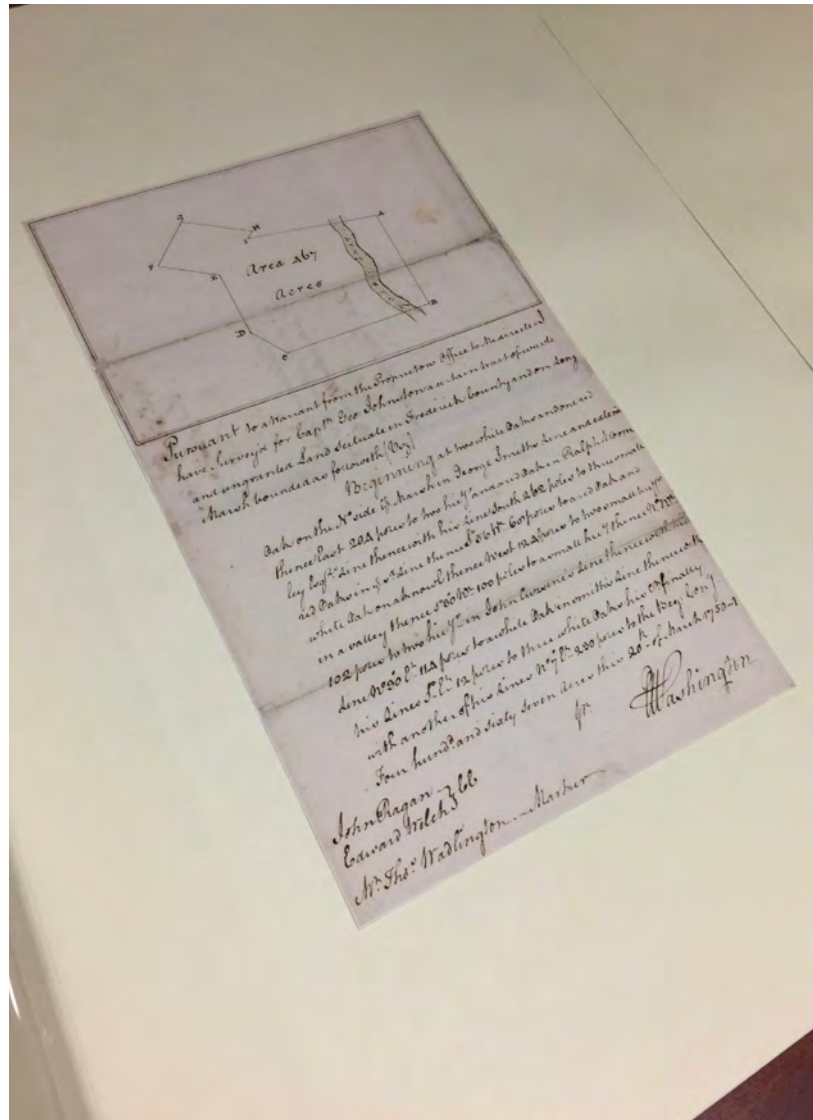 G
H
I
A
F
E
Area 467
Acres
B
D
C
Pursuant to a Warrant from the Proprietors Office to Me directed I
have Survey'd for Capᵗⁿ Geo Johnston a certain tract of waste
and ungranted Land Scituate in Frederick County and on Long
Marsh bounded as followeth (Viz)
Beginning at two white Oaks and one red
Oak on the Nº side yᵉ Marsh in George Smiths Line and extend
thence East 204 poles to two hicʸˢ and red Oak in Ralph Worm
ley Esqʳˢ Line thence with his Line South 262 poles to three small
red Oaks in yᵉ sᵈ Line thence Sº 56 Wᵗ 60 poles to red Oak and
white Oak on a knowl thence West 124 poles to two small hicʸˢ
in a valley thence Sº 60 Wᵗ 100 poles to a small hicʸ thence Nº Wᵗ
102 poles to two hicʸˢ in John Line thence with
Line Nº 30 Eᵗ 114 poles to a white Oak in Smiths Line thence with
his Lines Sº Eᵗ 12 poles to three white Oaks his Cʳ finally
with another of his Lines Nº 7 Eᵗ 230 poles to the Beg Conᵍ
Four hundᵈ and sixty Seven Acres this 20ᵗʰ of March 1750-1
pʳ GWashington
John Ragan
Edward Welch } CC
Mʳ Thoˢ Wadlington - Marker